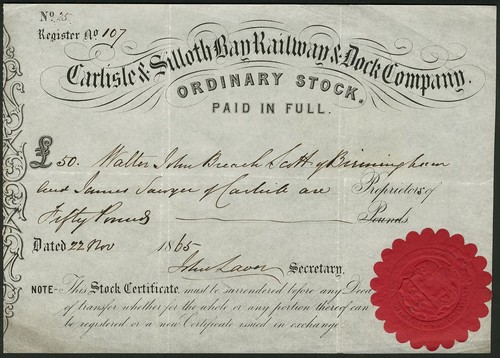 No
Register No 107
Carlisle & Silloth Bay Railway & Dock Company.
ORDINARY STOCK.
PAID IN FULL.
£50. Walter John Breach Scott of Birmingham
and James Sawyer of Carlisle are Proprietors of
Fifty Pounds Pounds
Dated 22 Nov 1865
John Secretary.
NOTE- This Stock Certificate, must be surrendered before any Deed
of transfer whether for the whole or any portion thereof can
be registered or a new Certificate issued in exchange.